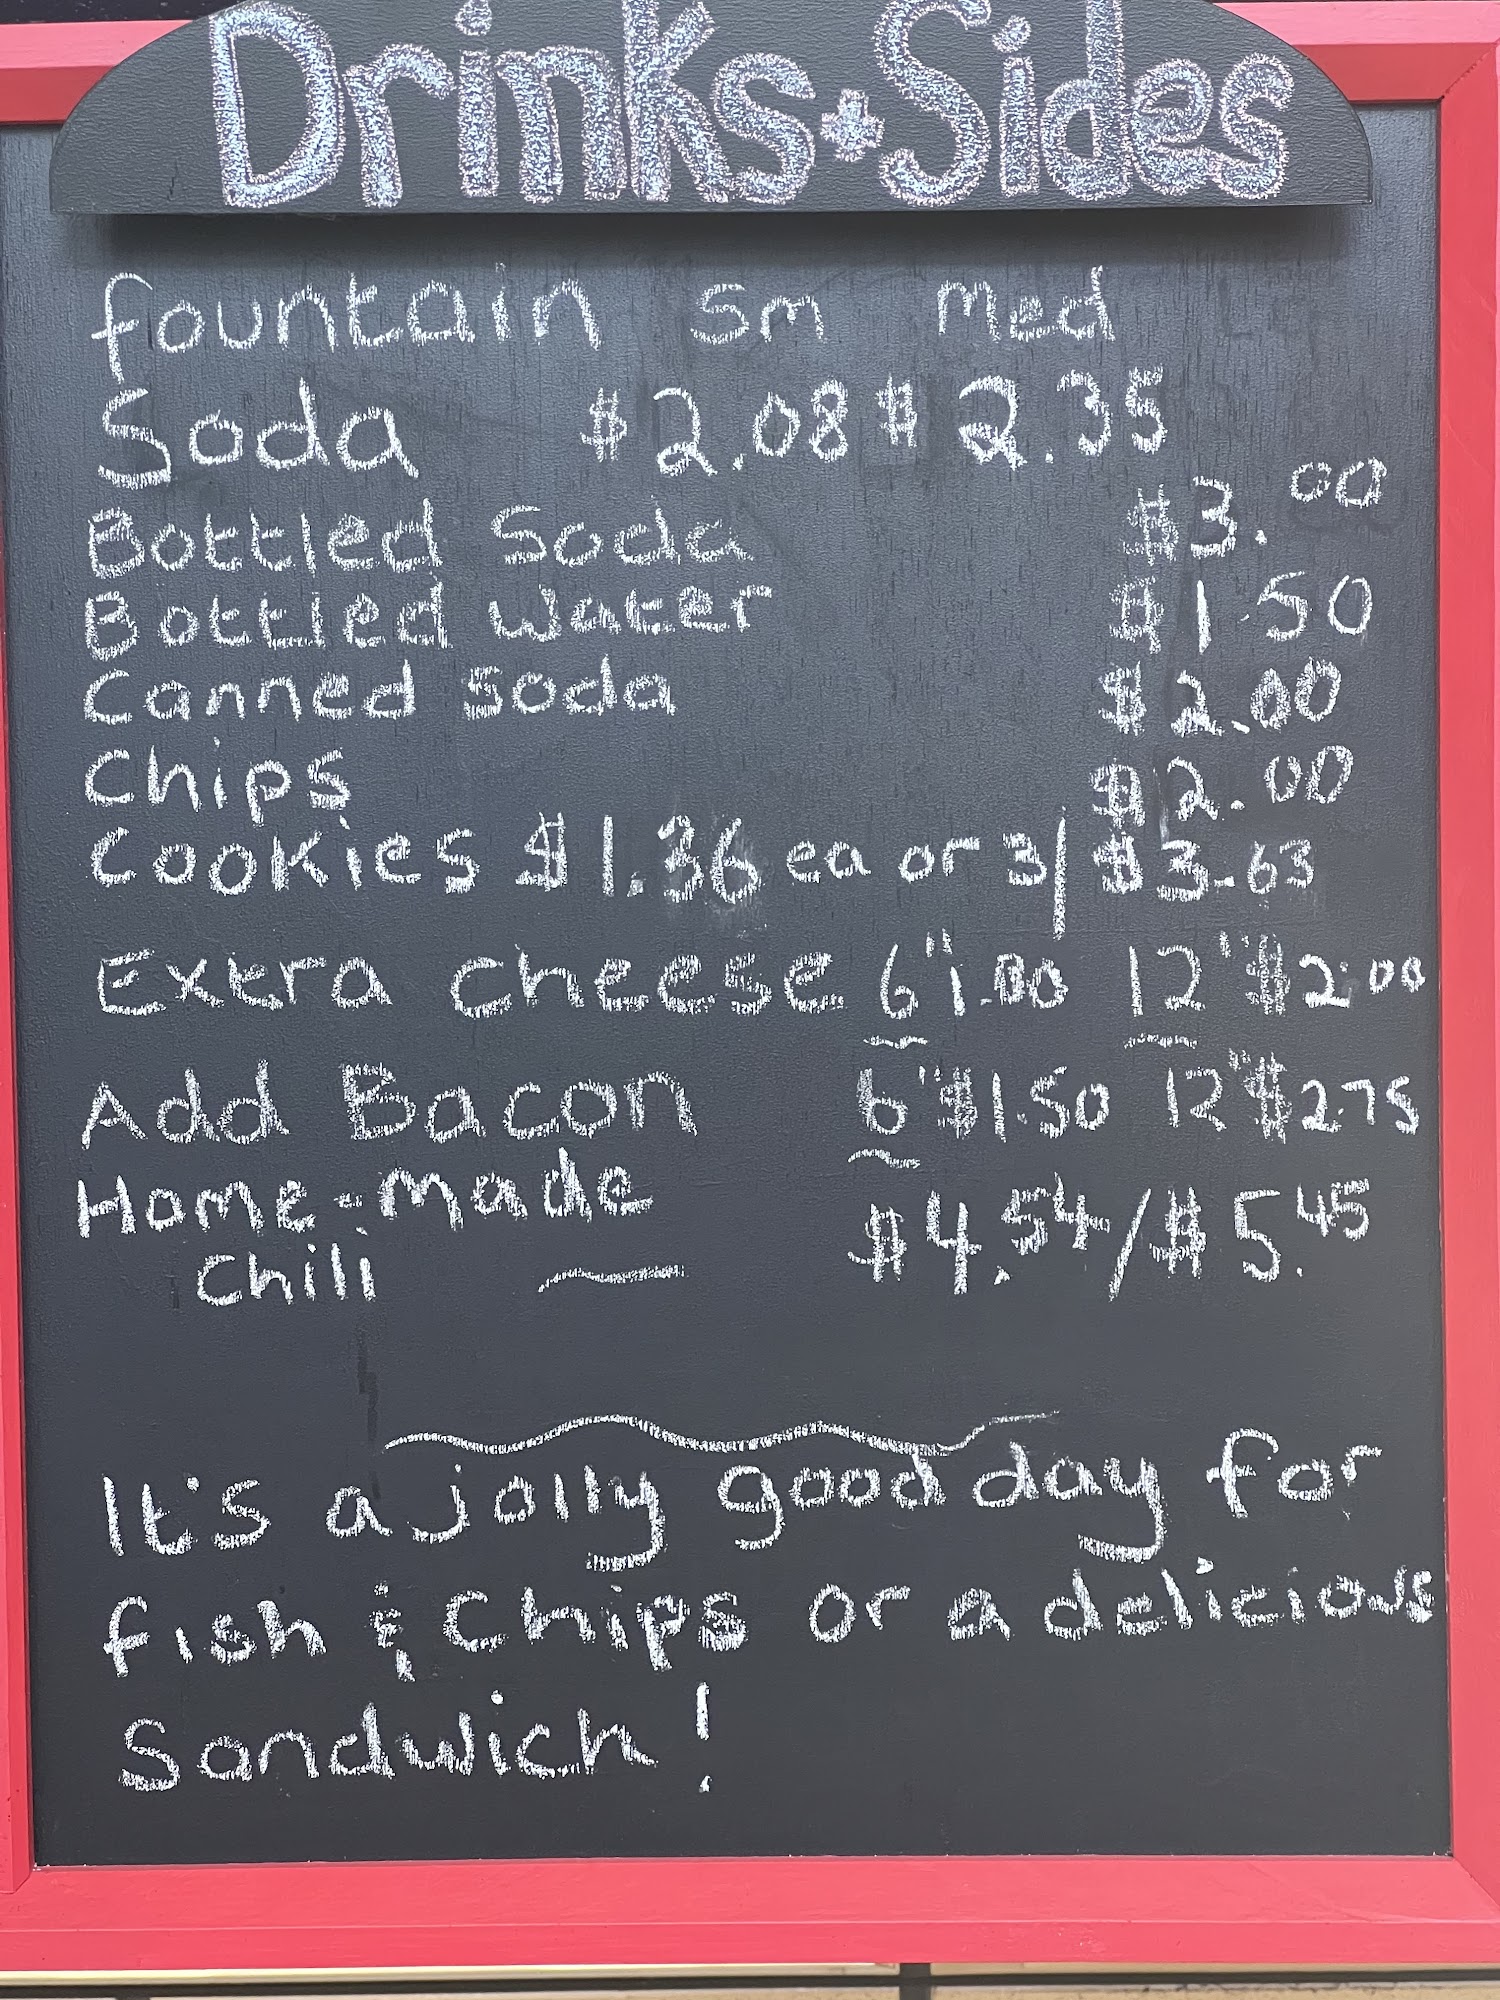 Drinks + Sides
fountain sm Med
Soda $2.08 $2.35
Bottled Soda $3.00
Bottled Water $1.50
Canned Soda $2.00
Chips $2.00
Cookies $1.36 ea or 3/$3.63
Extra cheese 6" 1.00 12" $2.00
Add Bacon 6" $1.50 12" $2.75
Home-made $4.54/$5.45
Chili
It's a jolly good day for
fish & Chips or a delicious
Sandwich!